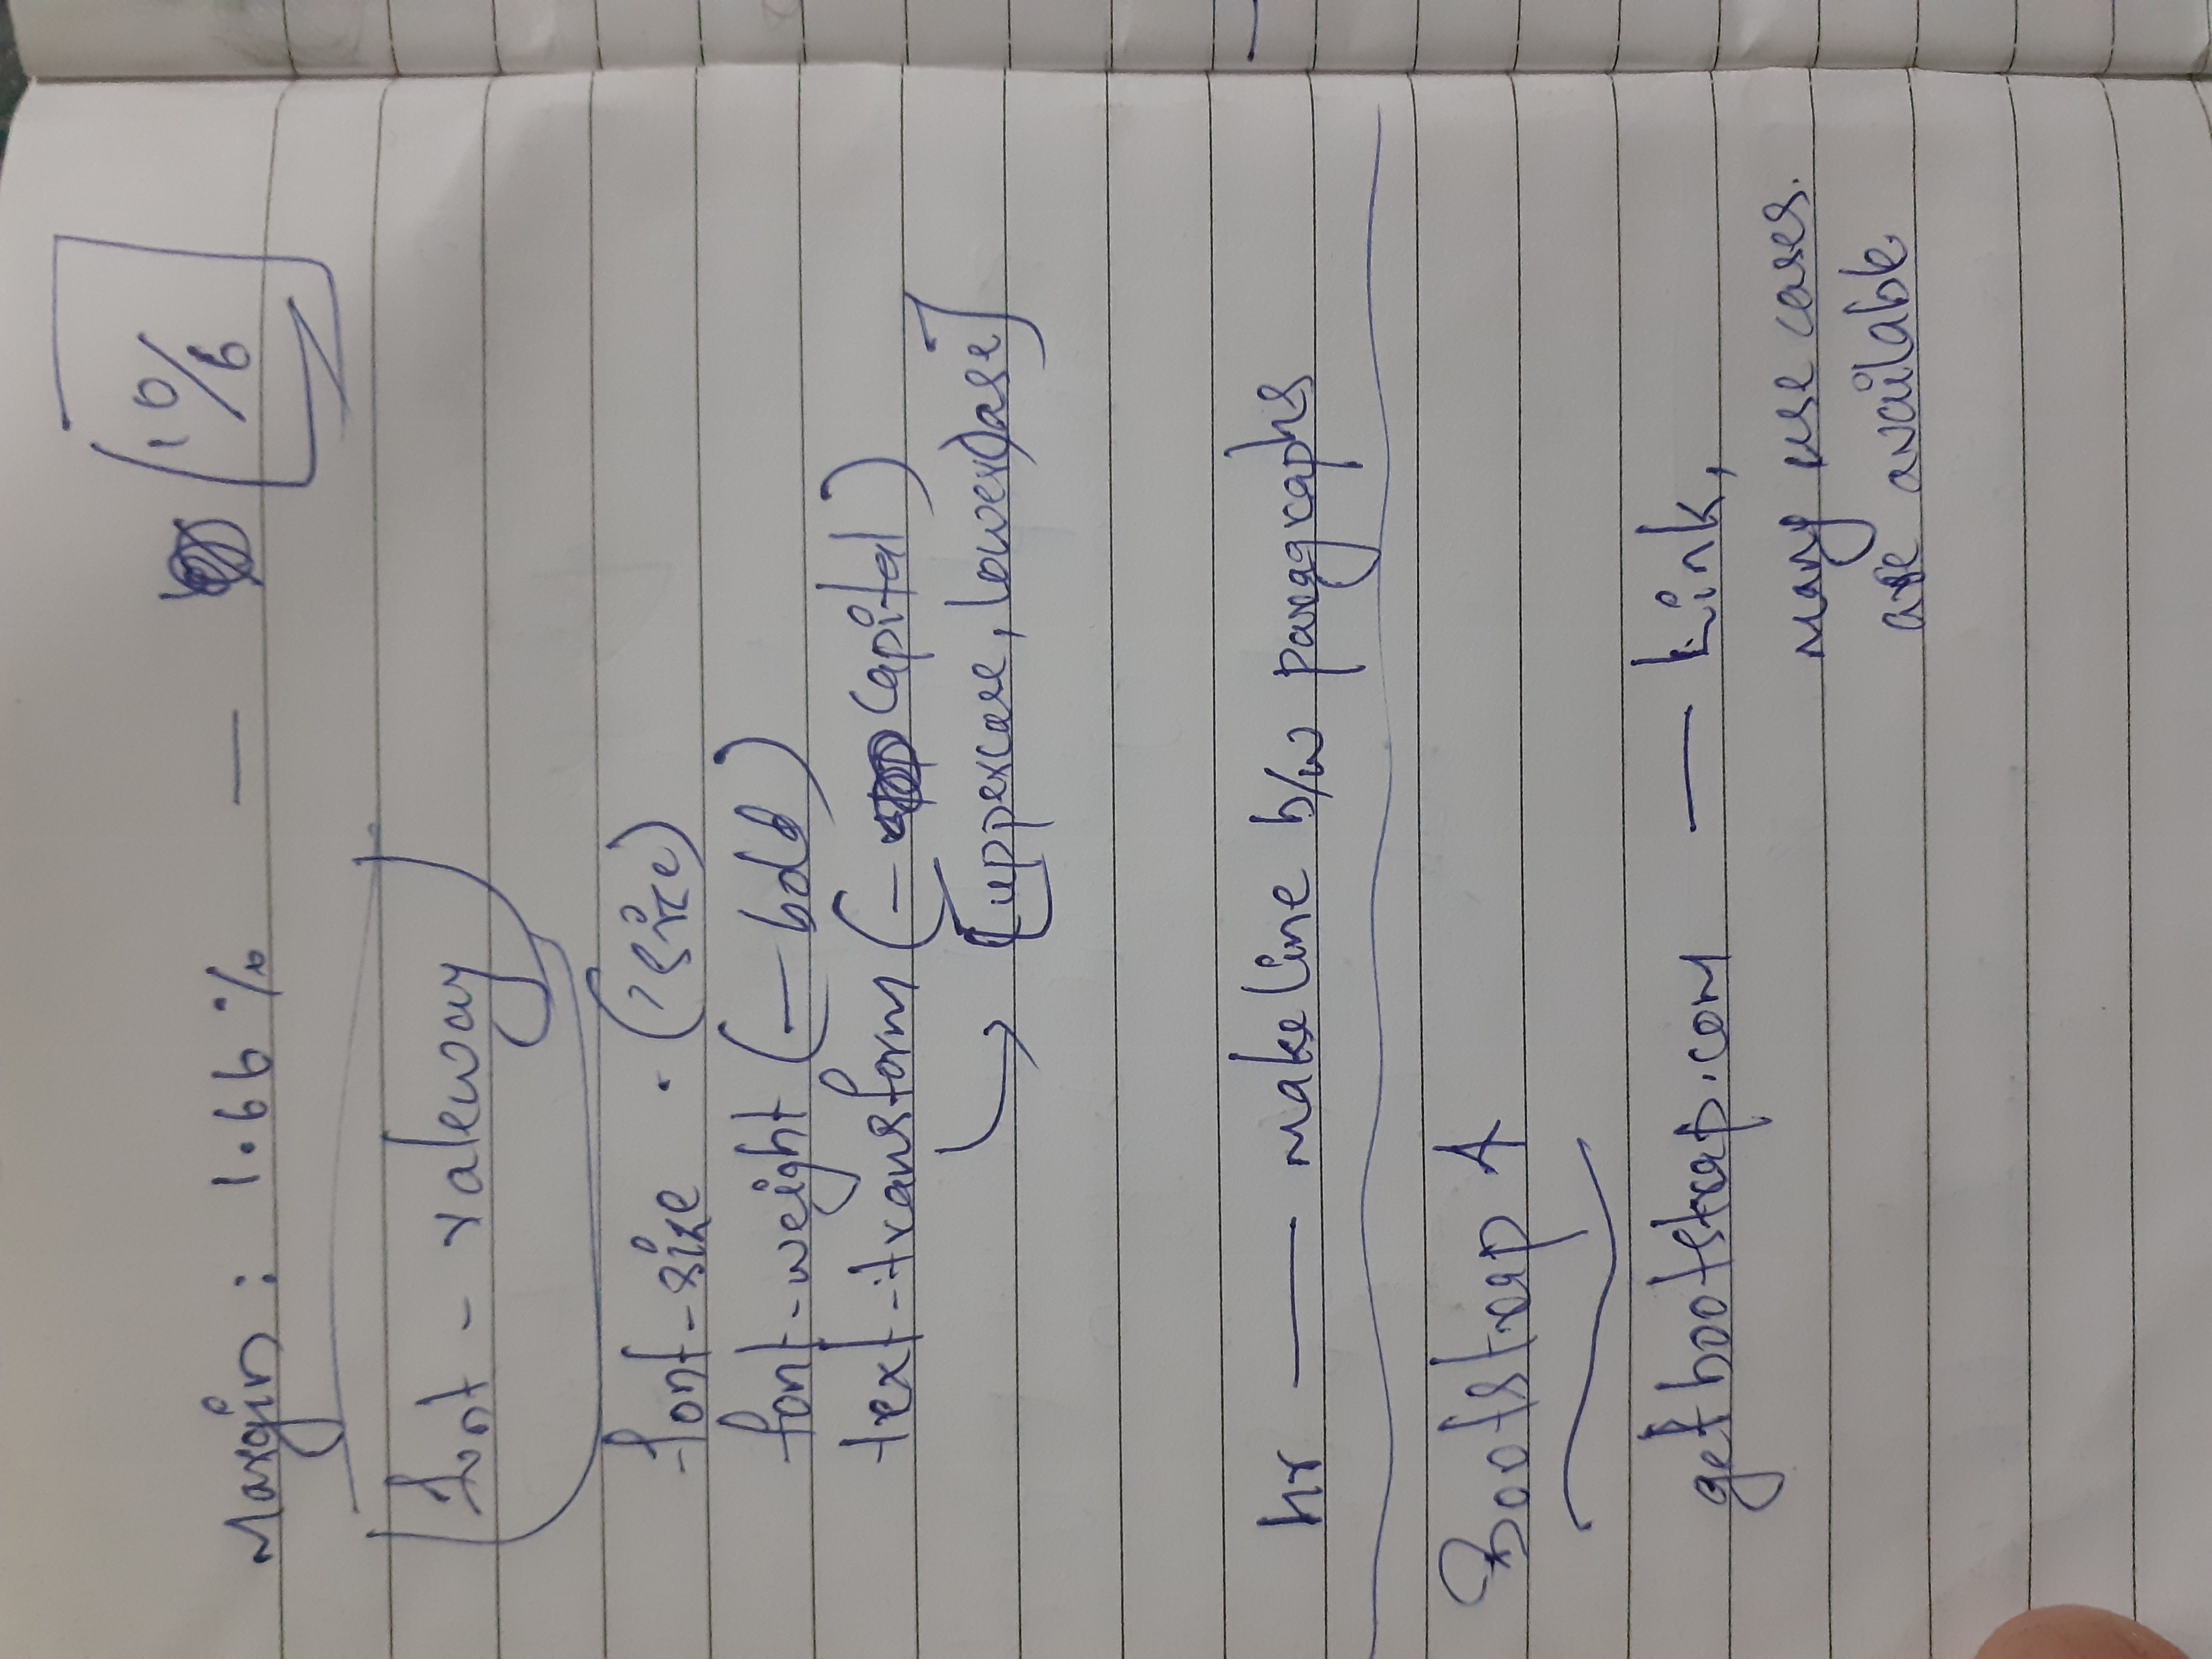 Margin : 1.66 % — 10/6
font - raleway
font-size . (’size)
font-weight (— bold)
text-transform (— capital)
↳ [uppercase, lowercase]
hr — make line b/w paragraphs
Bootstrap 4
getbootstrap.com — Link,
many use cases.
are available